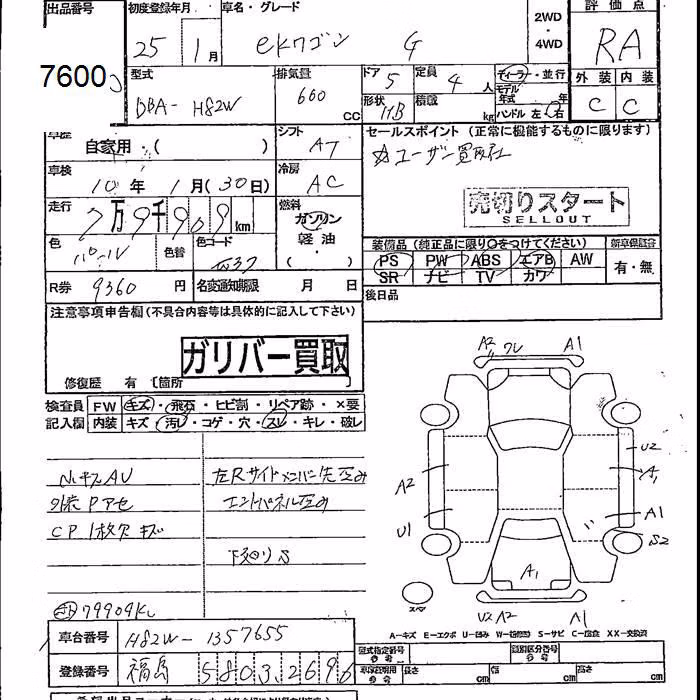 出品番号 初度登録年月 車名・グレード 2WD ・ 4WD 評価点
25 1月 ekワゴン G RA
7600
型式 排気量 ドア 5 定員 4 人 ディーラ・並行 外装 内装
DBA- H82W 660 CC 形状 HB 積載 kg モデル年式 年 ハンドル 左・右 C C
車歴 自家用・( ) シフト AT セールスポイント (正常に機能するものに限ります)
☆ユーザー買取社
車検 10年 1月(30日) 冷房 AC
売切りスタート
SELLOUT
走行 7万9千909km 燃料 ガソリン 軽油 ・( )
色 パール 色替 色コード W37
装備品 (純正品に限り〇をつけてください) 新車保証書
PS PW ABS エアB AW 有・無
SR ナビ TV カワ
R券 9360 円 名変通知期限 月 日 後日品
注意事項申告欄 (不具合内容等は具体的に記入して下さい)
ガリバー買取
修復歴 有 〔箇所
検査員 FW キズ・飛石・ヒビ割・リペア跡・×要
記入欄 内装 キズ・汚レ・コゲ・穴・スレ・キレ・破レ
A2 ワレ A1
ハンキズAV 左Rサイドメンバー先歪み
外装Pアセ エンドパネル歪み
CP1枚欠 キズ
下廻りS
U2
A1
A2
A1
U1
S2
A1
スペア
U2 A2 A1
79909KL
A－キズ E－エクボ U－凹み W－(板修復) S－サビ C－腐食 XX－交換済
車台番号 H82W-1357655 型式指定番号 類別区分番号
登録番号 福島 580 3 2696 長さ cm 幅 cm 高さ cm